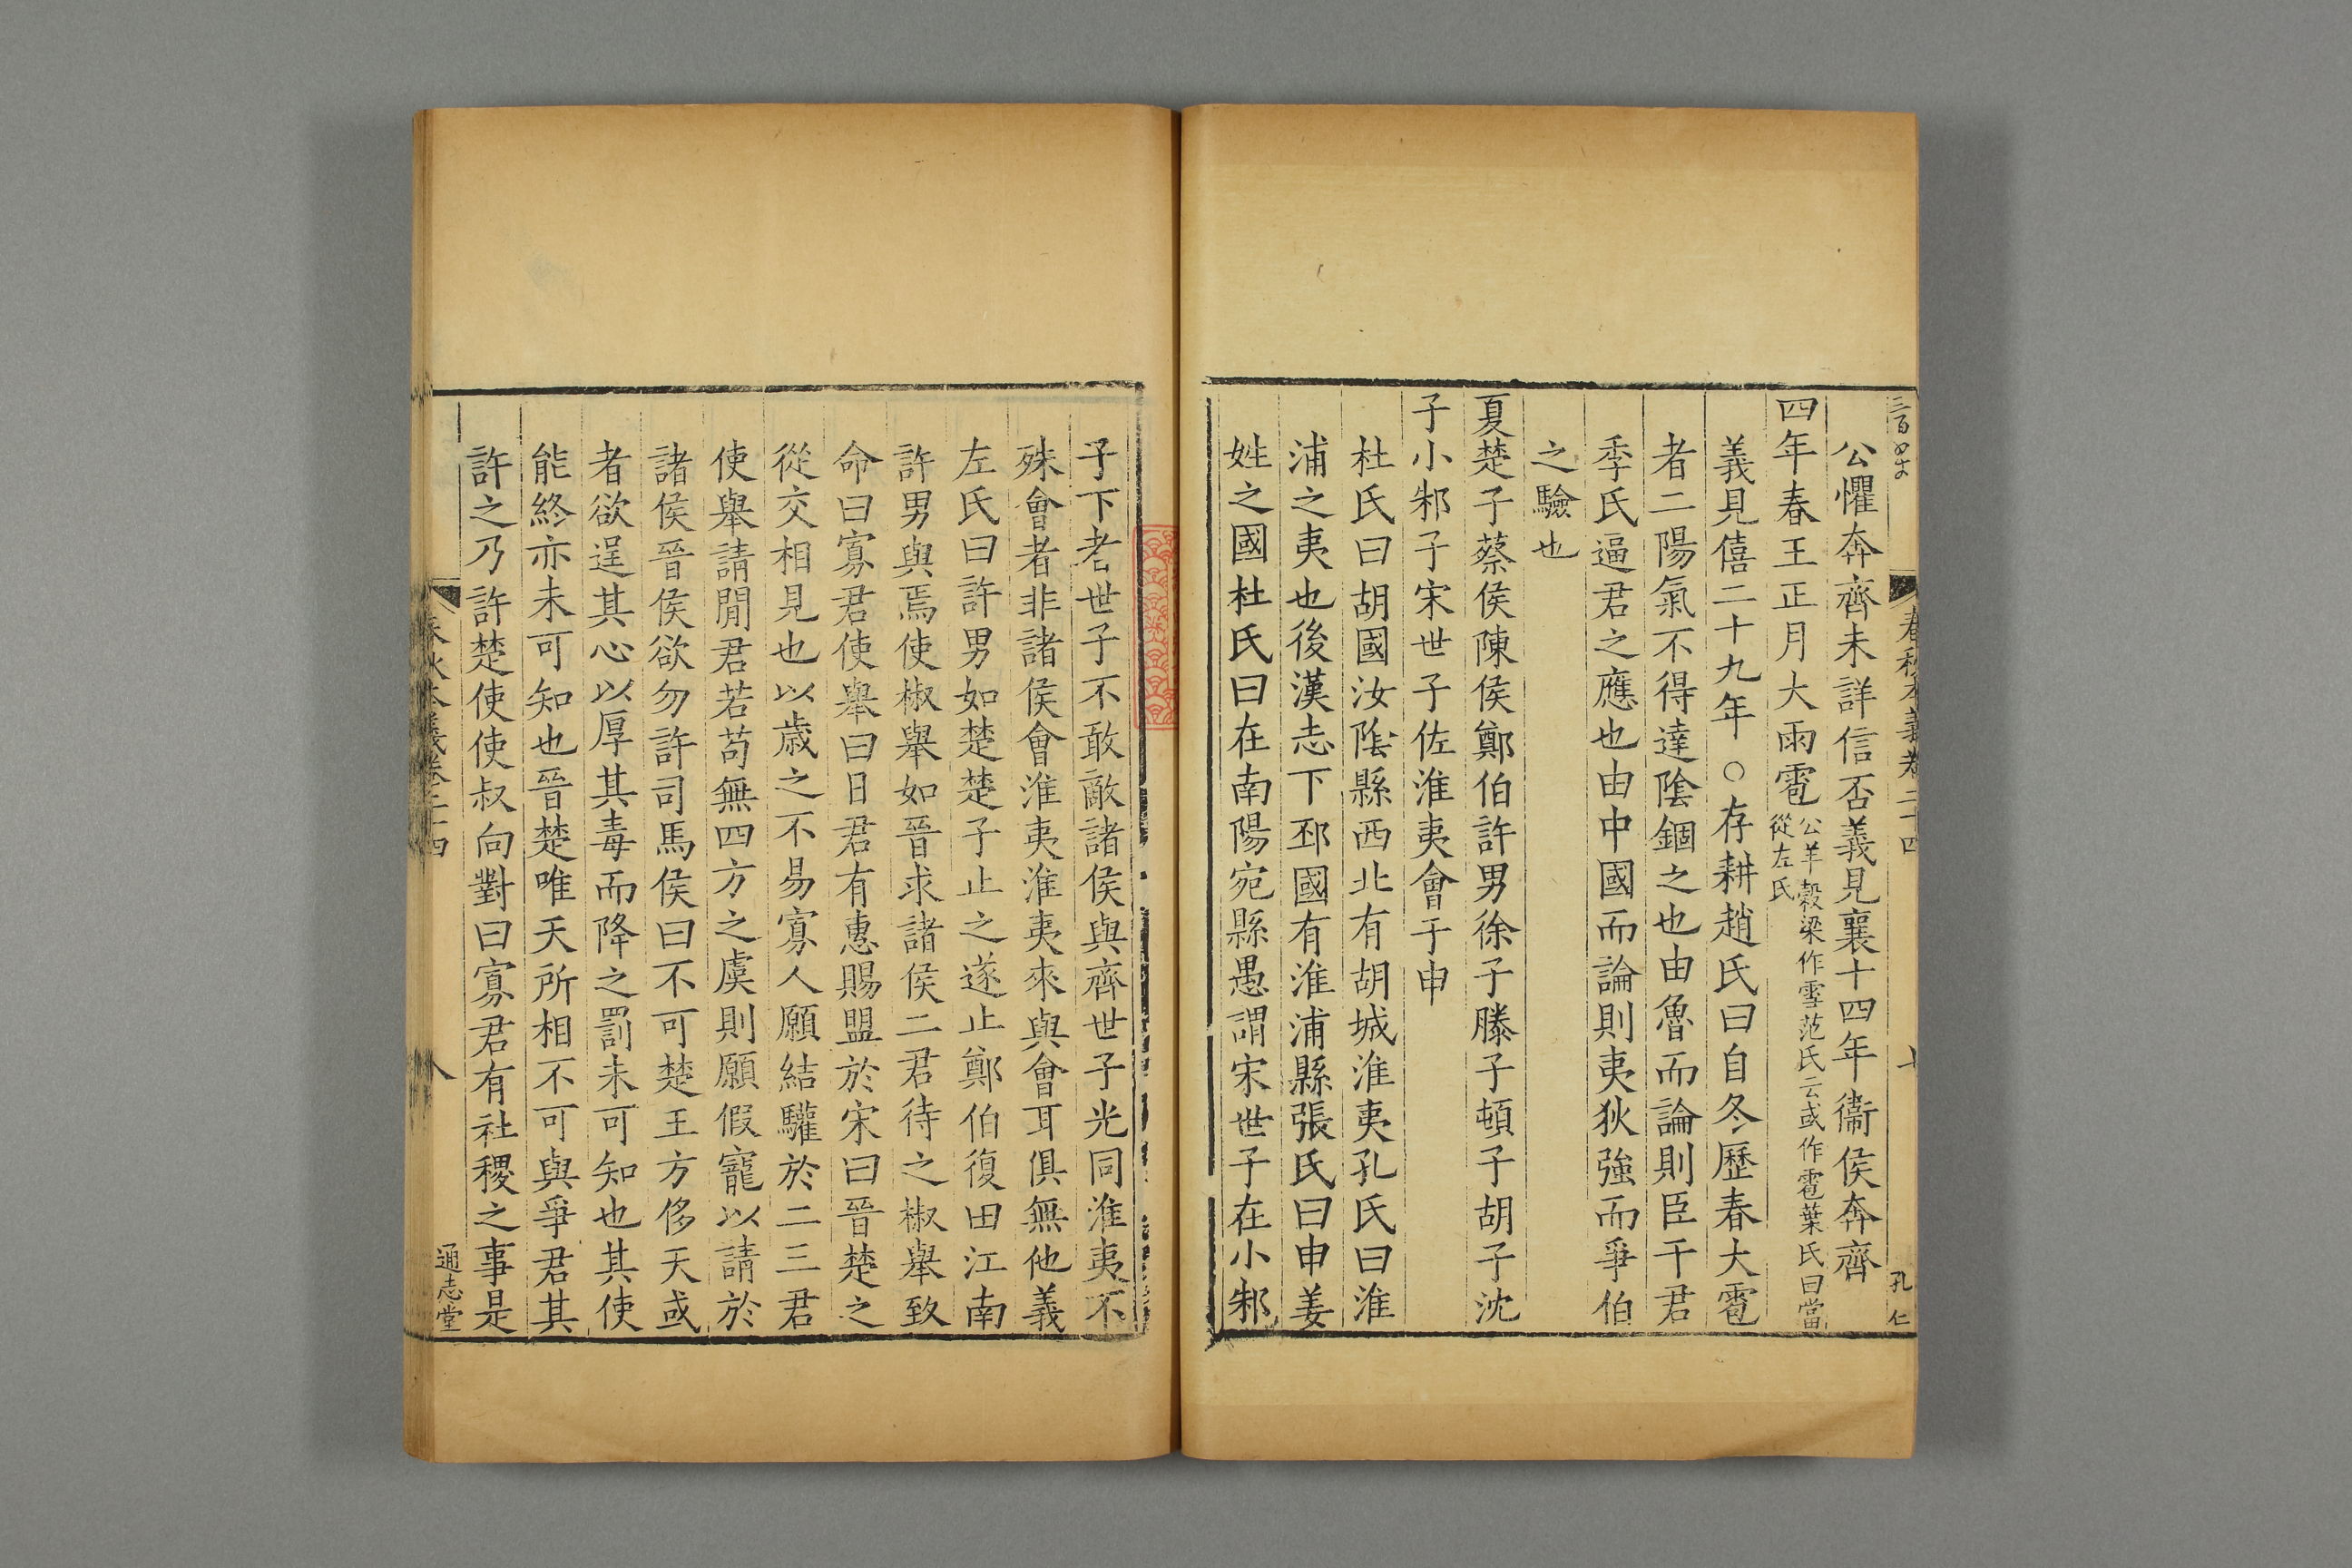 春秋本義卷二十四
孔仁
公懼奔齊未詳信否義見襄十四年衞侯奔齊
四年春王正月大雨雹公羊穀梁作雪范氏云或作雹葉氏曰當從左氏
義見僖二十九年○存耕趙氏曰自冬歷春大雹
者二陽氣不得達陰錮之也由魯而論則臣干君
季氏逼君之應也由中國而論則夷狄強而爭伯
之驗也
夏楚子蔡侯陳侯鄭伯許男徐子滕子頓子胡子沈
子小邾子宋世子佐淮夷會于申
杜氏曰胡國汝陰縣西北有胡城淮夷孔氏曰淮
浦之夷也後漢志下邳國有淮浦縣張氏曰申姜
姓之國杜氏曰在南陽宛縣愚謂宋世子在小邾
子下者世子不敢敵諸侯與齊世子光同淮夷不
殊會者非諸侯會淮夷淮夷來與會耳俱無他義
左氏曰許男如楚楚子止之遂止鄭伯復田江南
許男與焉使椒舉如晉求諸侯二君待之椒舉致
命曰寡君使舉曰日君有惠賜盟於宋曰晉楚之
從交相見也以歲之不易寡人願結驩於二三君
使舉請閒君若苟無四方之虞則願假寵以請於
諸侯晉侯欲勿許司馬侯曰不可楚王方侈天或
者欲逞其心以厚其毒而降之罰未可知也其使
能終亦未可知也晉楚唯天所相不可與爭君其
許之乃許楚使使叔向對曰寡君有社稷之事是
春秋本義卷二十四
八
通志堂